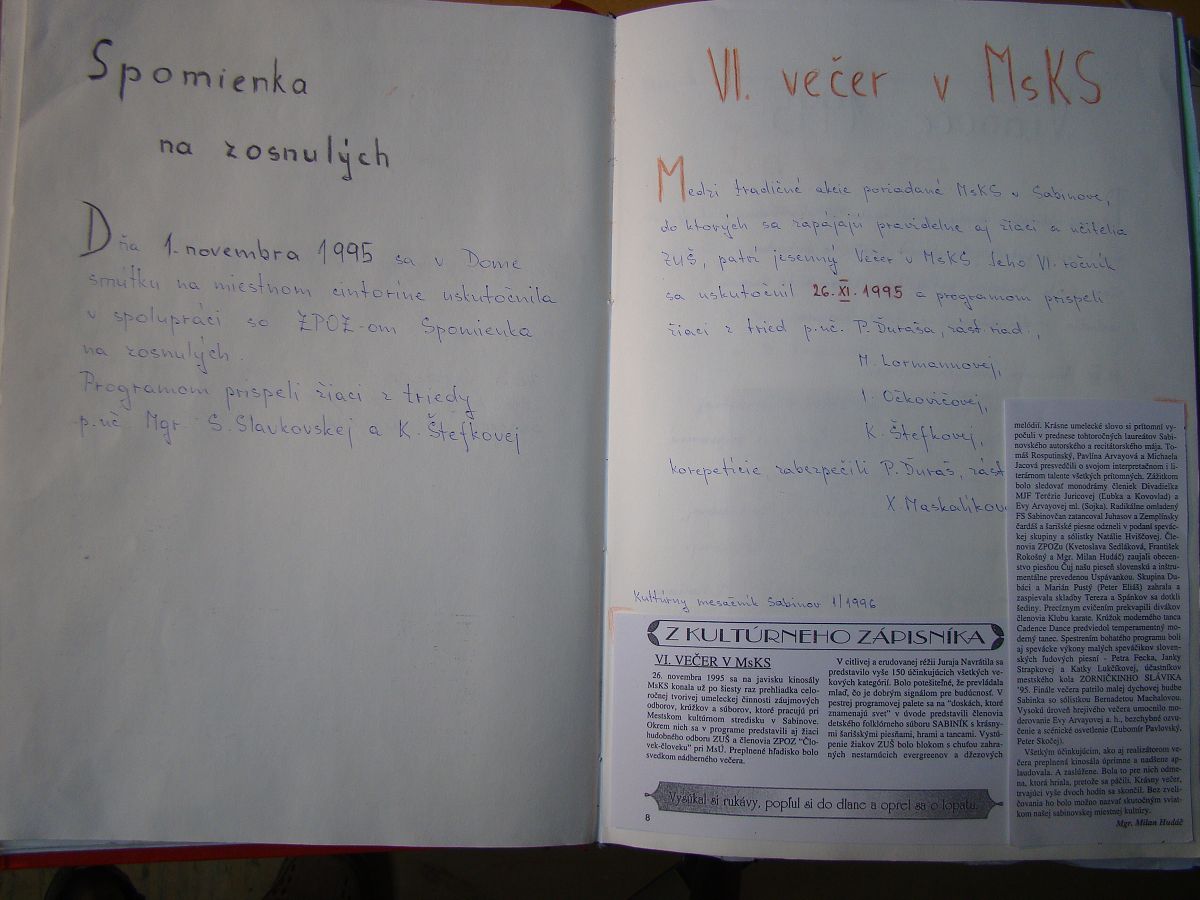 Spomienka
na zosnulých
Dňa 1. novembra 1995 sa v Dome
smútku na miestnom cintoríne uskutočnila
v spolupráci so ZPOZ-om Spomienka
na zosnulých.
Programom prispeli žiaci z triedy
p.uč Mgr. S. Slavkovskej a K. Štefkovej
VI. večer v MsKS
Medzi tradičné akcie poriadané MsKS v Sabinove,
do ktorých sa zapájajú pravidelne aj žiaci a učitelia
ZUŠ, patrí jesenný Večer v MsKS. Jeho VI. ročník
sa uskutočnil 26. XI. 1995 a programom prispeli
žiaci z tried p.uč. P. Ďuraša, zást. riad.,
M. Lormannovej,
I. Očkovičovej,
K. Štefkovej,
korepetície zabezpečili P. Ďuraš, zást
X. Maskalíkov
Kultúrny mesačník Sabinov 1/1996
Z KULTÚRNEHO ZÁPISNÍKA
VI. VEČER V MsKS
26. novembra 1995 sa na javisku kinosály
MsKS konala už po šiesty raz prehliadka celo-
ročnej tvorivej umeleckej činnosti záujmových
odborov, krúžkov a súborov, ktoré pracujú pri
Mestskom kultúrnom stredisku v Sabinove.
Okrem nich sa v programe predstavili aj žiaci
hudobného odboru ZUŠ a členovia ZPOZ "Člo-
vek-človeku" pri MsÚ. Preplnené hľadisko bolo
svedkom nádherného večera.
V citlivej a erudovanej réžii Juraja Navrátila sa
predstavilo vyše 150 účinkujúcich všetkých ve-
kových kategórií. Bolo potešiteľné, že prevládala
mlaď, čo je dobrým signálom pre budúcnosť. V
pestrej programovej palete sa na "doskách, ktoré
znamenajú svet" v úvode predstavili členovia
detského folklórneho súboru SABINÍK s krásny-
mi šarišskými piesňami, hrami a tancami. Vystú-
penie žiakov ZUŠ bolo blokom s chuťou zahra-
ných nestarnúcich evergreenov a džezových
Vysúkal si rukávy, popľul si do dlane a oprel sa o lopatu.
8
melódií. Krásne umelecké slovo si prítomní vy-
počuli v prednese tohtoročných laureátov Sabi-
novského autorského a recitátorského mája. To-
máš Rosputinský, Pavlína Arvayová a Michaela
Jacová presvedčili o svojom interpretačnom i li-
terárnom talente všetkých prítomných. Zážitkom
bolo sledovať monodrámy členiek Divadielka
MJF Terézie Juricovej (Ľubka a Kovovlad) a
Evy Arvayovej ml. (Sojka). Radikálne omladený
FS Sabinovčan zatancoval Juhasov a Zemplínsky
čardáš a šarišské piesne odzneli v podaní spevác-
kej skupiny a sólistky Natálie Hviščovej. Čle-
novia ZPOZu (Kvetoslava Sedláková, František
Rokošný a Mgr. Milan Hudáč) zaujali obecen-
stvo piesňou Čuj našu pieseň slovenská a inštru-
mentálne prevedenou Uspávankou. Skupina Du-
báci a Marián Pustý (Peter Eliáš) zahrala a
zaspievala skladby Tereza a Spánkov sa dotkli
šediny. Precíznym cvičením prekvapili divákov
členovia Klubu karate. Krúžok moderného tanca
Cadence Dance predviedol temperamentný mo-
derný tanec. Spestrením bohatého programu boli
aj spevácke výkony malých speváčikov sloven-
ských ľudových piesní - Petra Fecka, Janky
Strapkovej a Katky Lukčíkovej, účastníkov
mestského kola ZORNIČKINHO SLÁVIKA
'95. Finále večera patrilo malej dychovej hudbe
Sabinka so sólistkou Bernadetou Machalovou.
Vysokú úroveň hrejivého večera umocnilo mo-
derovanie Evy Arvayovej a. h., bezchybné ozvu-
čenie a scénické osvetlenie (Ľubomír Pavlovský,
Peter Skočej).
Všetkým účinkujúcim, ako aj realizátorom ve-
čera preplnená kinosála úprimne a nadšene ap-
laudovala. A zaslúžene. Bola to pre nich odme-
na, ktorá hriala, pretože sa páčili. Krásny večer,
trvajúci vyše dvoch hodín sa skončil. Bez zveli-
čovania ho bolo možno nazvať skutočným sviat-
kom našej sabinovskej miestnej kultúry.
Mgr. Milan Hudáč